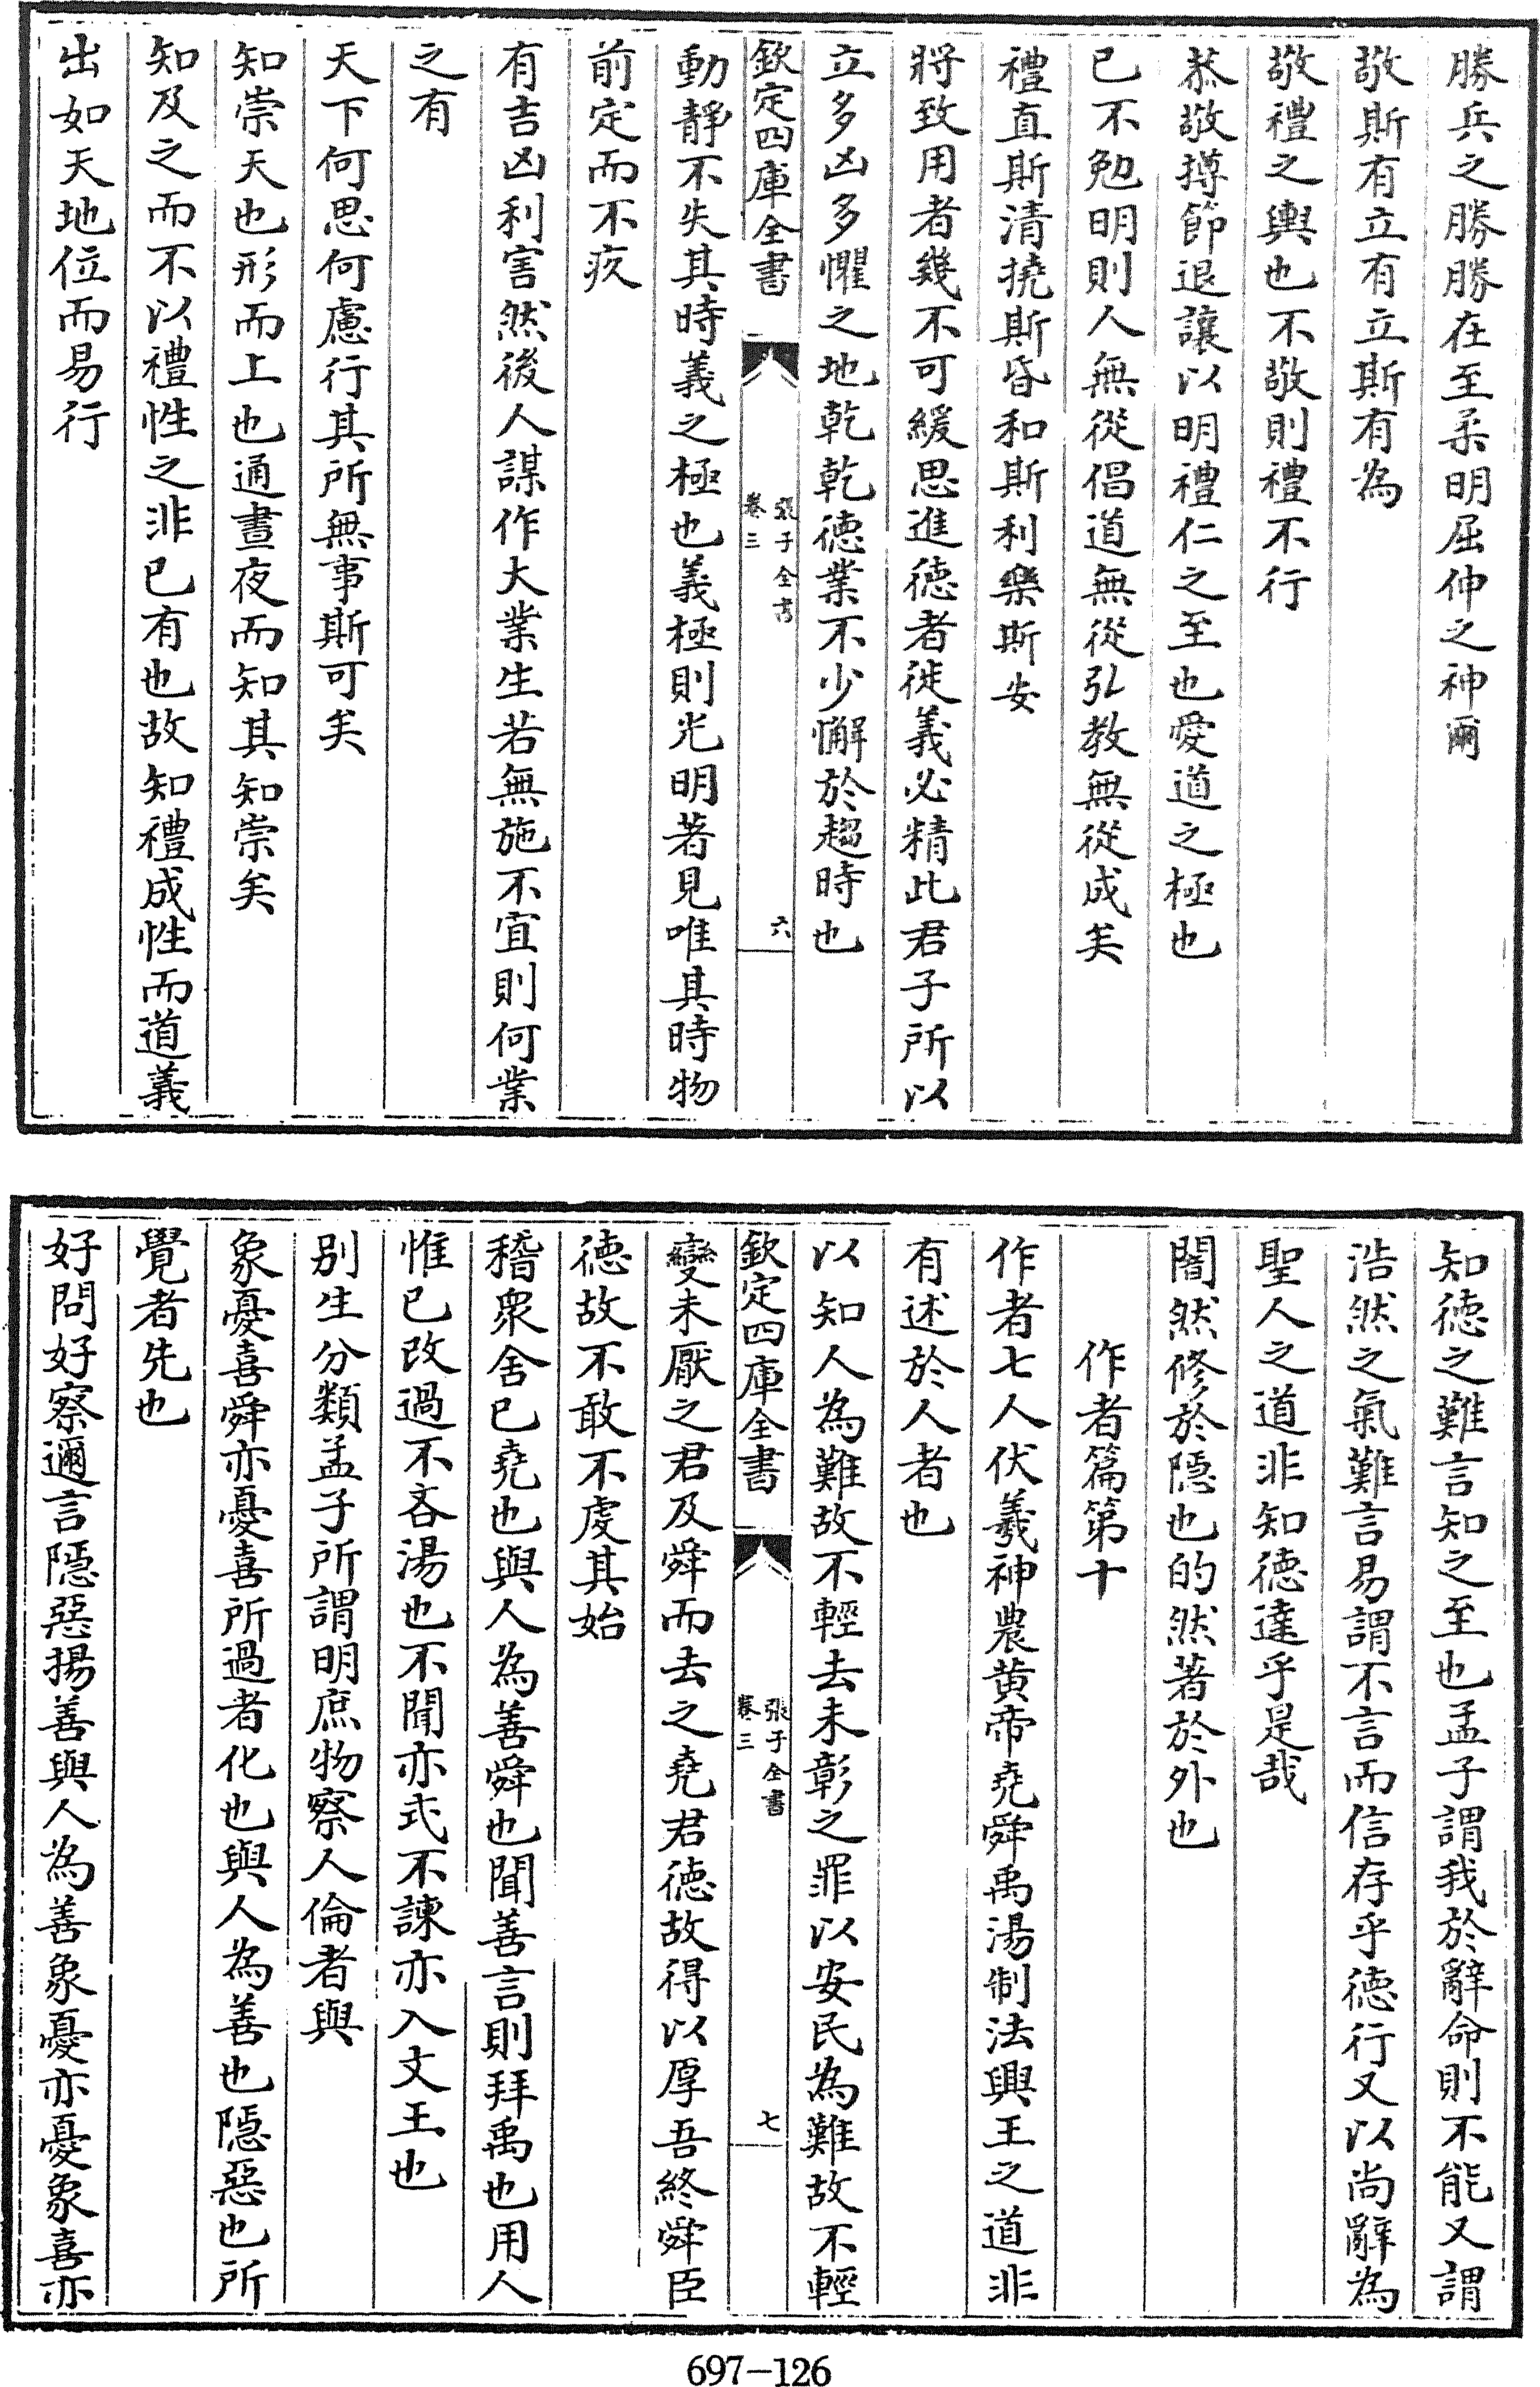 勝兵之勝勝在至柔明屈伸之神爾
敬斯有立有立斯有為
敬禮之輿也不敬則禮不行
恭敬撙節退讓以明禮仁之至也愛道之極也
已不勉明則人無從倡道無從弘教無從成矣
禮直斯清撓斯昏和斯利樂斯安
將致用者幾不可緩思進德者徙義必精此君子所以
立多凶多懼之地乾乾德業不少懈於趨時也
欽定四庫全書
張子全書
卷三
六
動靜不失其時義之極也義極則光明著見唯其時物
前定而不疚
有吉凶利害然後人謀作大業生若無施不宜則何業
之有
天下何思何慮行其所無事斯可矣
知崇天也形而上也通晝夜而知其知崇矣
知及之而不以禮性之非已有也故知禮成性而道義
出如天地位而易行
知德之難言知之至也孟子謂我於辭命則不能又謂
浩然之氣難言易謂不言而信存乎德行又以尚辭為
聖人之道非知德達乎是哉
闇然修於隱也的然著於外也
作者篇第十
作者七人伏羲神農黄帝堯舜禹湯制法興王之道非
有述於人者也
以知人為難故不輕去未彰之罪以安民為難故不輕
欽定四庫全書
張子全書
卷三
七
變未厭之君及舜而去之堯君德故得以厚吾終舜臣
德故不敢不虔其始
稽衆舍已堯也與人為善舜也聞善言則拜禹也用人
惟已改過不吝湯也不聞亦式不諫亦入文王也
别生分類孟子所謂明庶物察人倫者與
象憂喜舜亦憂喜所過者化也與人為善也隱惡也所
覺者先也
好問好察邇言隱惡揚善與人為善象憂亦憂象喜亦
697-126